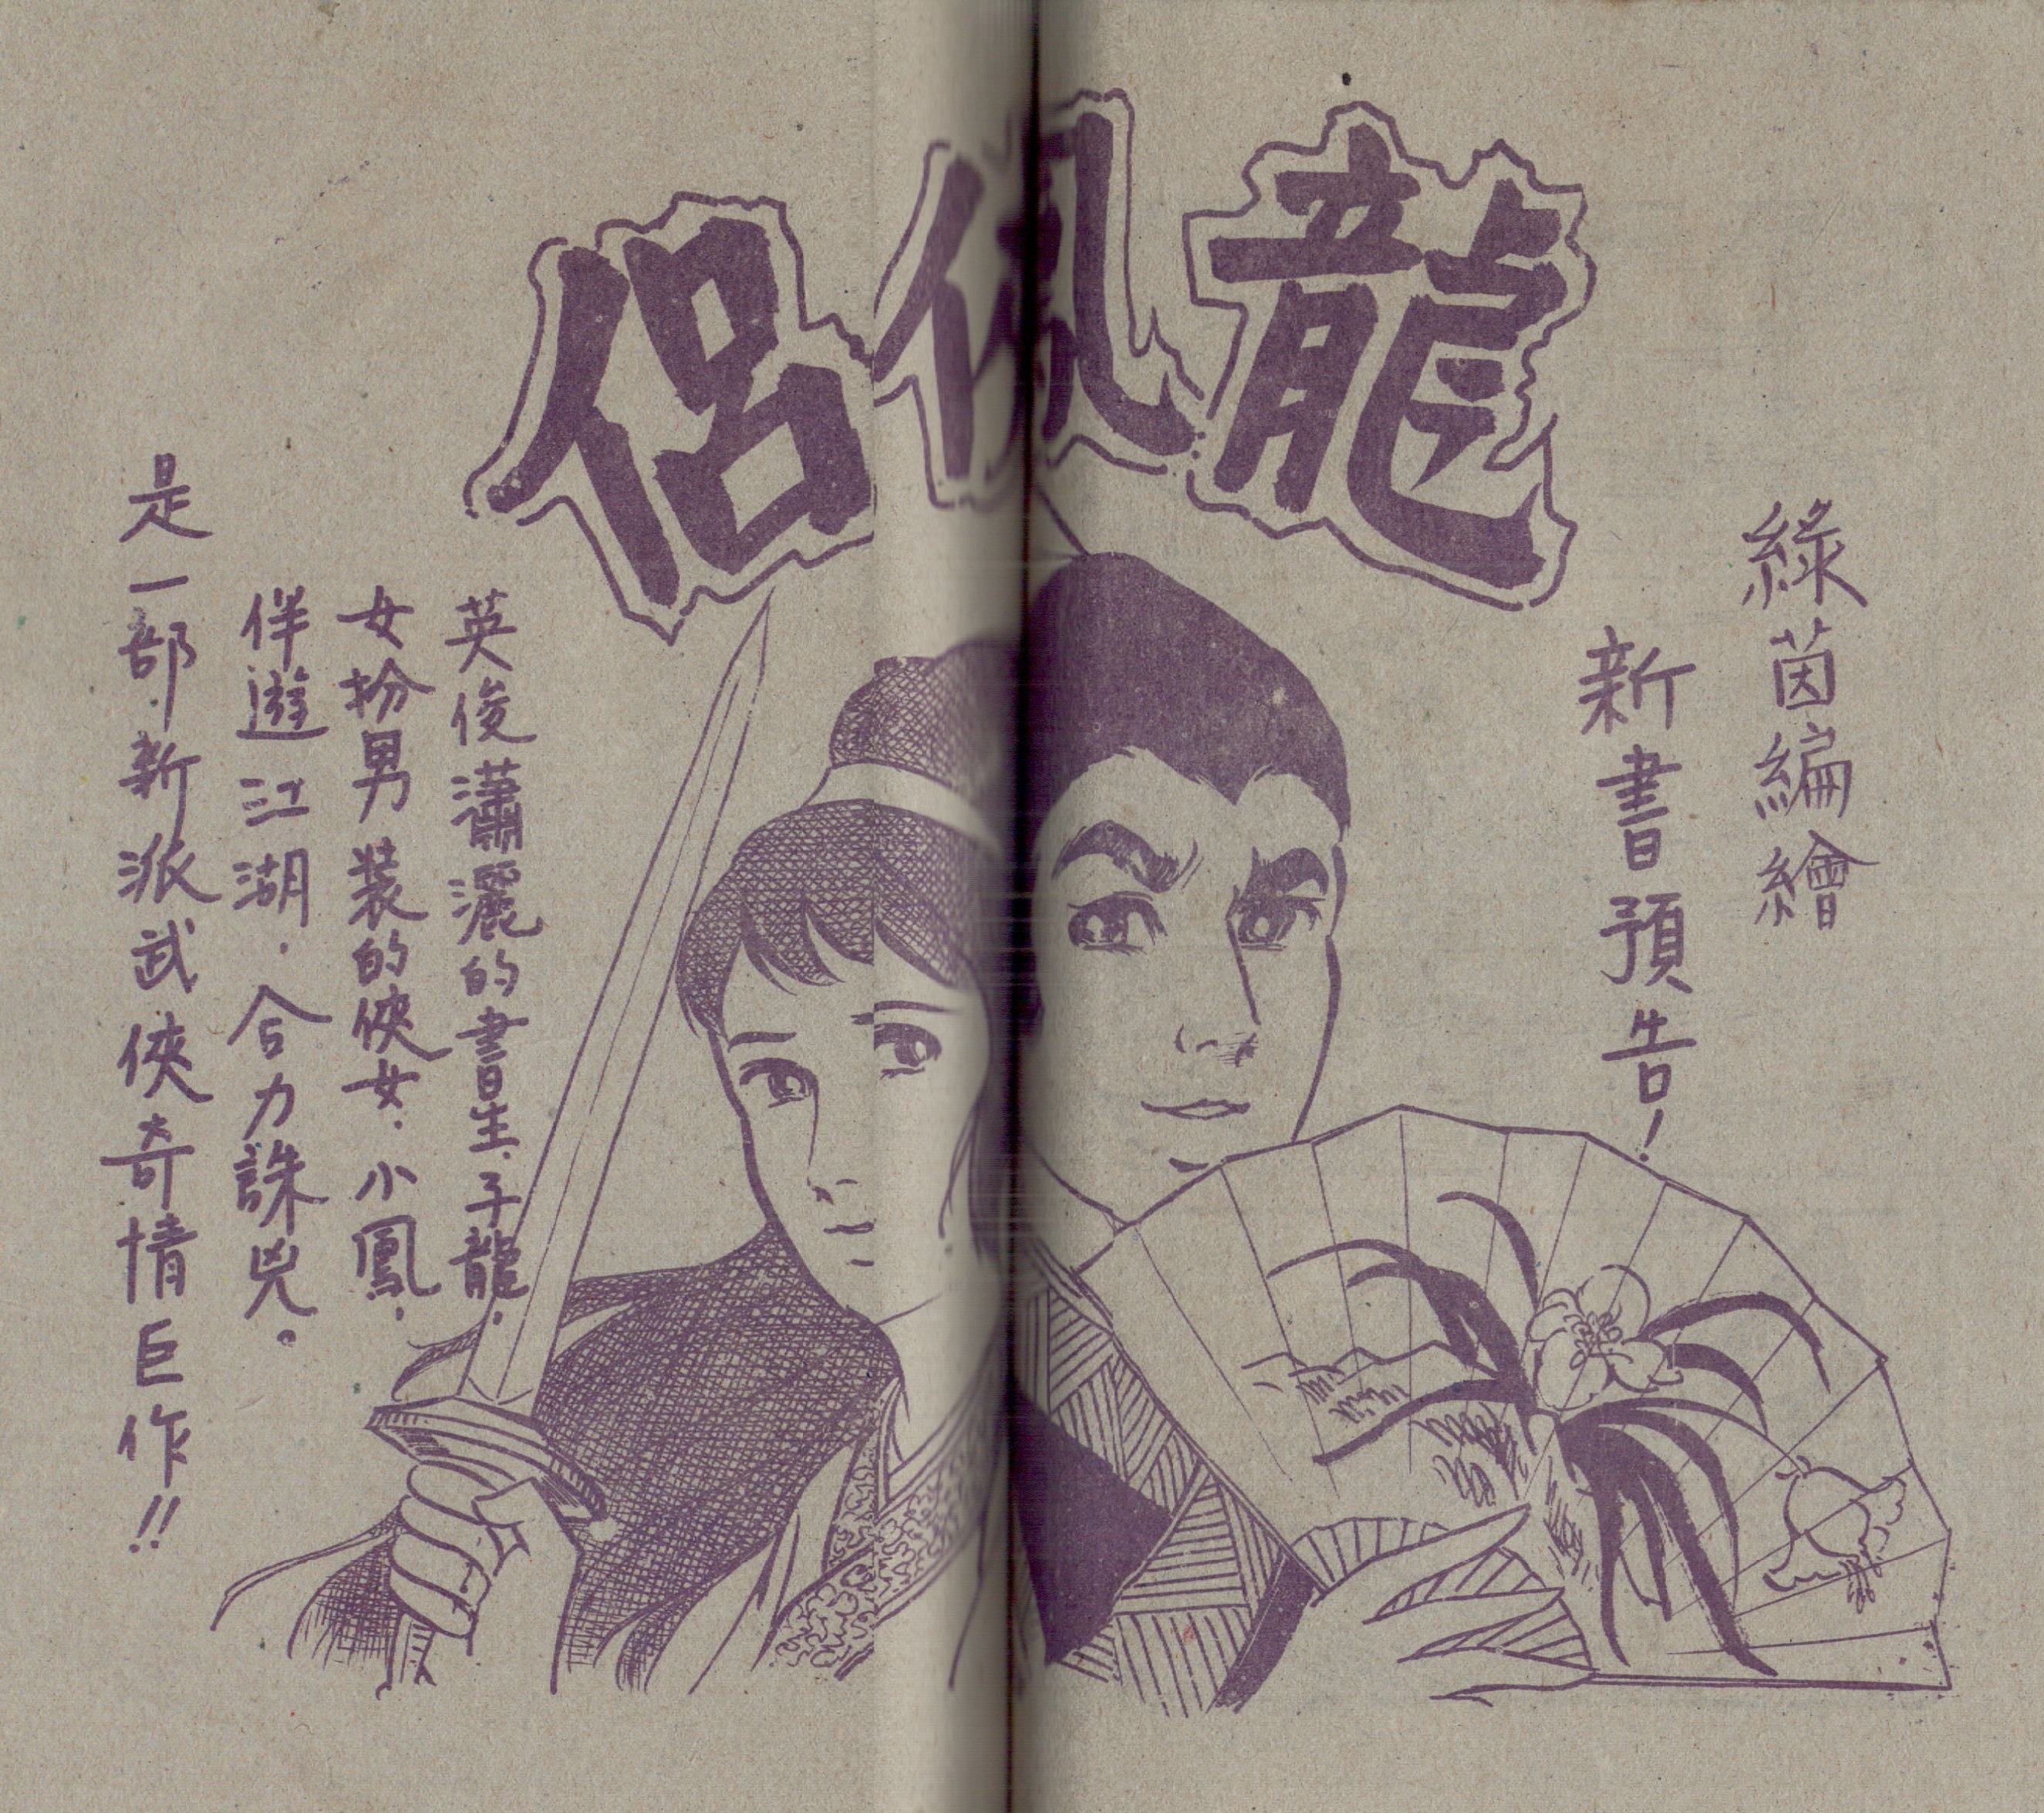 綠茵編繪
新書預告！
龍 侶
英俊瀟灑的書生．子龍．
女扮男裝的俠女．小鳳．
伴遊江湖．合力誅兇。
是一部新派武俠奇情巨作！！